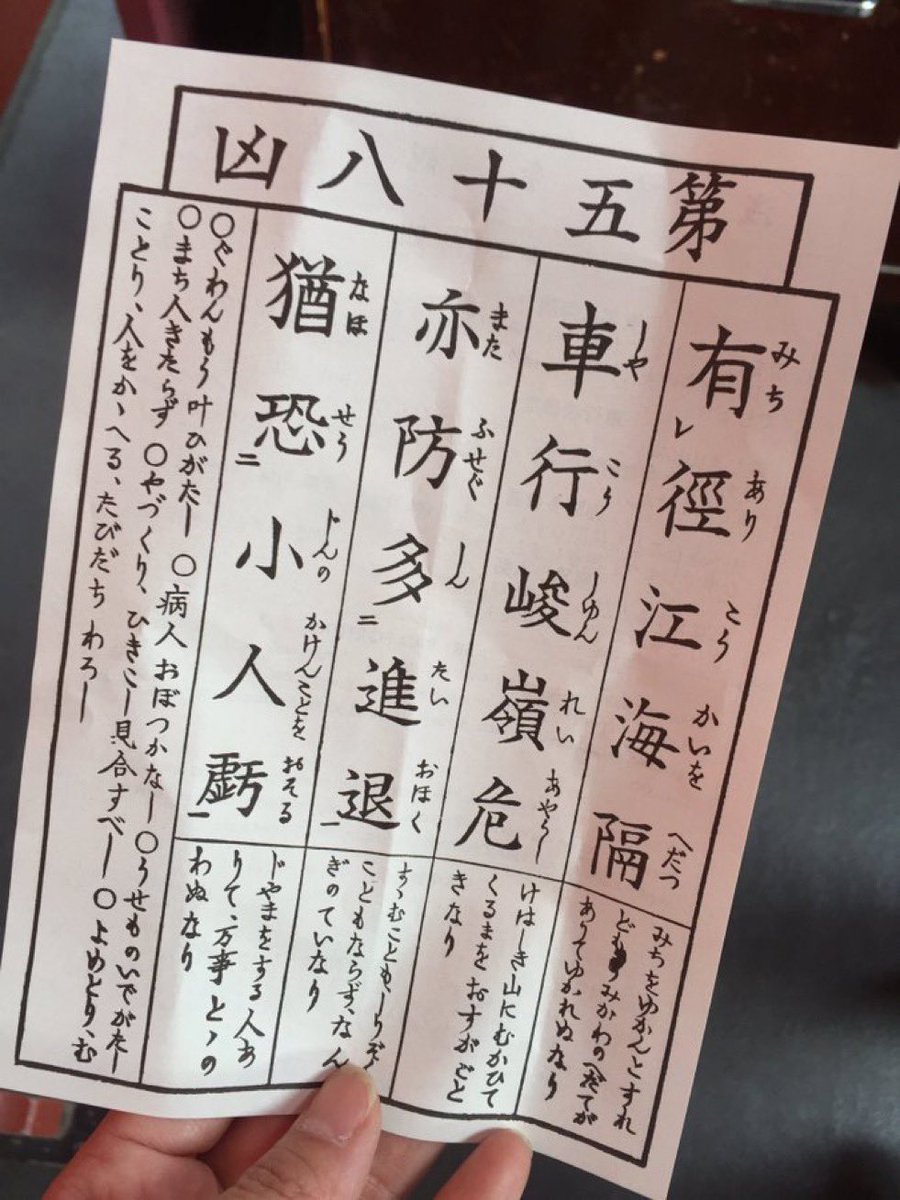 第五十八凶
有レ徑江海隔
みち あり こう かいを へだつ
車行峻嶺危
しや こう しゆん れい あやうし
亦防二多進退一
また ふせぐ しん たい おほく
猶恐二小人虧一
なほ せう じんの かけんことを おそる
みちをゆかんとすれ
ども うみかわのへだてが
ありてゆかれぬなり
けはしき山にむかひて
くるまをおすがごと
きなり
すゝむことも しりぞく
こともならず、なん
ぎのていなり
じやまをする人あ
りて、万事とゝの
わぬなり
○ぐわんもう叶ひがたし ○病人おぼつかなし ○うせものいでがたし
○まち人きたらず ○やづくり、ひきこし見合すべし ○よめとり、む
ことり、人をかゝへる、たびだちわろし